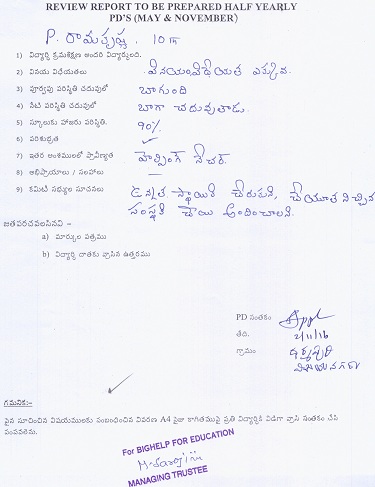 REVIEW REPORT TO BE PREPARED HALF YEARLY
PD'S (MAY & NOVEMBER)
P. రామకృష్ణ, 10th
1) విద్యార్థి క్రమశిక్షణ అందరి విద్యార్థులలో.
2) వినయ విధేయతలు వినయం విధేయత ఎక్కువ.
3) పూర్వపు పరిస్థితి చదువులో బాగుంది
4) నేటి పరిస్థితి చదువులో బాగా చదువుతాడు.
5) స్కూలుకు హాజరు పరిస్థితి. 90%
6) పరిశుభ్రత ✓
7) ఇతర అంశములలో ప్రావీణ్యత హెల్పింగ్ నేచర్.
8) అభిప్రాయాలు / సలహాలు —
9) కమిటీ సభ్యుల సూచనలు ఉన్నత స్థాయికి చేరుకుని, చేయూత నిచ్చిన
సంస్థకి చేయి అందించాలని.
జతపరచవలసినవి –
a) మార్కుల పత్రము
b) విద్యార్థి దాతకు వ్రాసిన ఉత్తరము
PD సంతకం
తేది. 2/11/16
గ్రామం
గమనిక:–
పైన సూచించిన విషయములకు సంబంధించిన వివరణ A4 సైజు కాగితముపై ప్రతి విద్యార్థికి విడిగా వ్రాసి సంతకం చేసి
పంపవలెను.
For BIGHELP FOR EDUCATION
MANAGING TRUSTEE